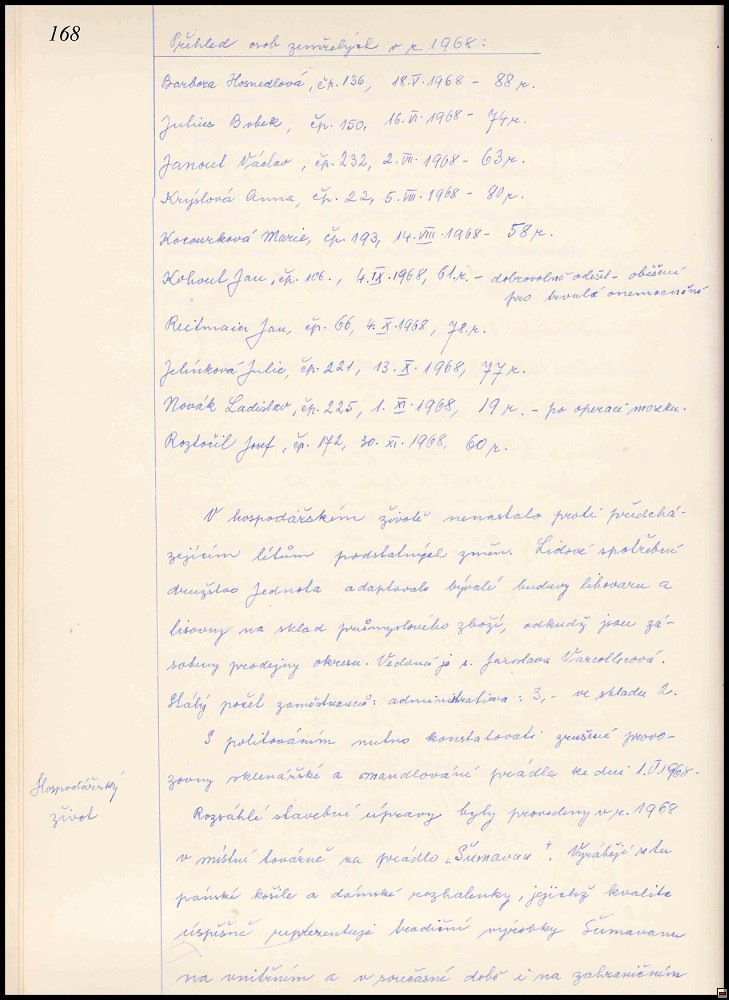 168
Přehled osob zemřelých v r. 1968:
Barbora Hosnedlová, čp. 136, 18.V.1968 - 88 r.
Julius Bobek, čp. 150, 16.VI.1968 - 74 r.
Janout Václav, čp. 232, 2.VII.1968 - 63 r.
Kryslová Anna, čp. 22, 5.VIII.1968 - 80 r.
Kocourková Marie, čp. 193, 14.VIII.1968 - 58 r.
Kohout Jan, čp. 106., 4.IX.1968, 61.r. - dobrovolně odešel - oběšení
pro trvalé onemocnění
Reitmaier Jan, čp. 66, 4.X.1968, 78.r.
Jelínková Julie, čp. 221, 13.X.1968, 77 r.
Novák Ladislav, čp. 225, 1.XI.1968, 19 r. - po operaci mozku.
Roztočil Josef, čp. 172, 30.XI.1968, 60 r.
V hospodářském životě nenastalo proti předchá-
zejícím létům podstatných změn. Lidové spotřební
družstvo Jednota adaptovalo bývalé budovy lihovaru a
lisovny na sklad průmyslového zboží, odkudž jsou zá-
sobeny prodejny okresu. Vedoucí je s. Jaroslava
Stálý počet zaměstnanců: administrativa: 3,- ve skladu 2.
S politováním nutno konstatovati zrušení provo-
zovny sklenářské a mandlování prádla ke dni 1.V.1968.
Hospodářský
život
Rozsáhlé stavební úpravy byly provedeny v r. 1968
v místní továrně na prádlo „Šumavan". Vyrábějí se tu
pánské košile a dámské rozhalenky, jejichž kvalita
úspěšně reprezentuje tradiční výrobky Šumavanu
na vnitřním a v současné době i na zahraničním